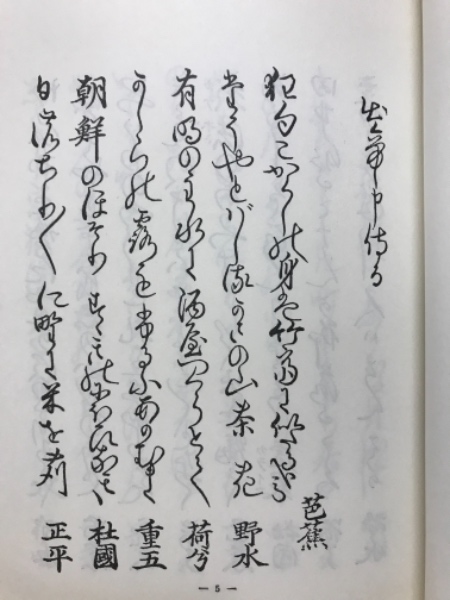 出て申侍る
狂句こがらしの身は竹斎に似たる哉
芭蕉
たそやとばしるかさの山茶花 野水
有明の主水に酒屋つくらせて 荷兮
かしらの露をふるふあかむま 重五
朝鮮のほそりすゝきのにほひなき 杜國
日のちり〳〵に野に米を苅 正平
— 5 —